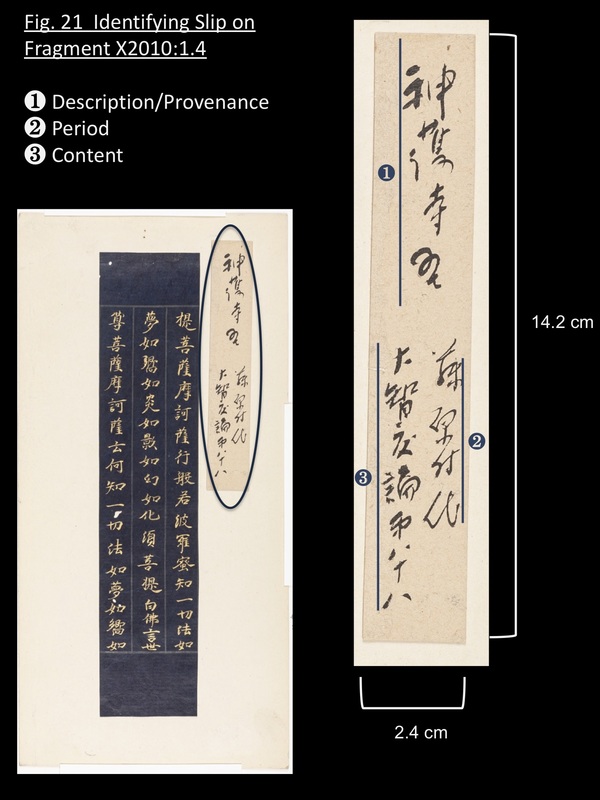 Fig. 21 Identifying Slip on
Fragment X2010:1.4
❶ Description/Provenance
❷ Period
❸ Content
提菩薩摩訶薩行般若波羅蜜知一切法如
夢如響如炎如影如幻如化須菩提白佛言世
尊菩薩摩訶薩云何知一切法如夢如響如
神護寺
藤原時代
大智度論第八十八
❶
神護寺
藤原時代
❷
大智度論第八十八
❸
14.2 cm
2.4 cm